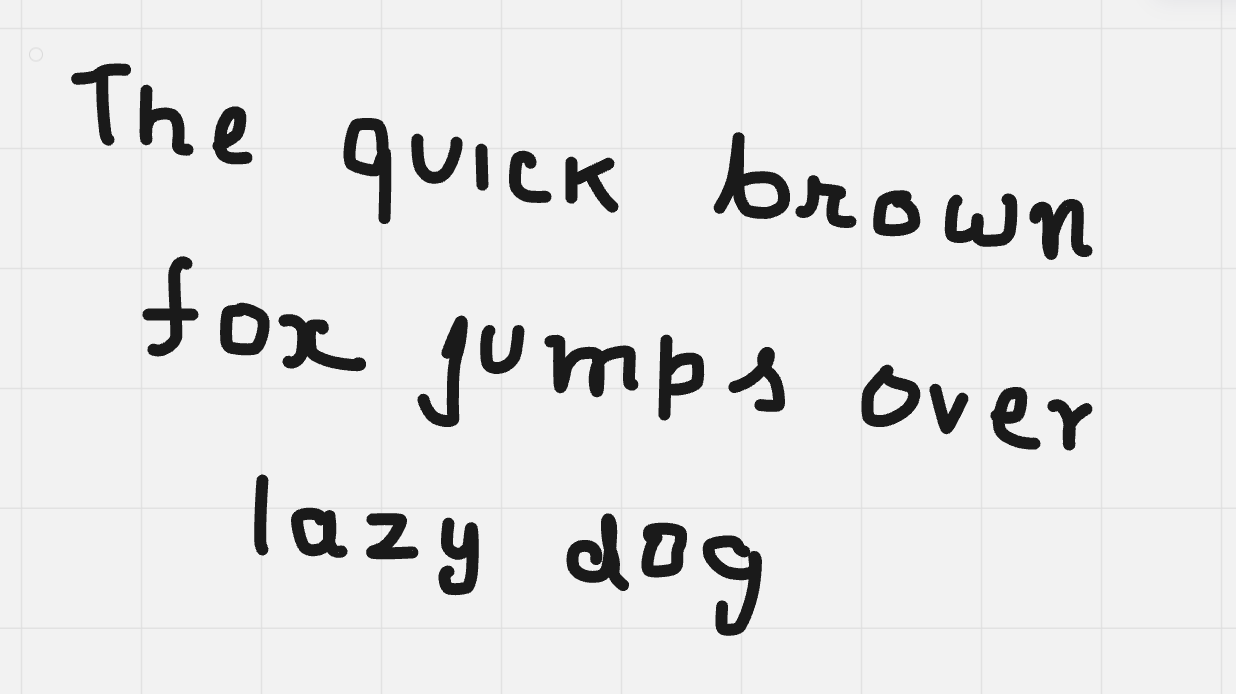 The quick brown
fox jumps over
lazy dog